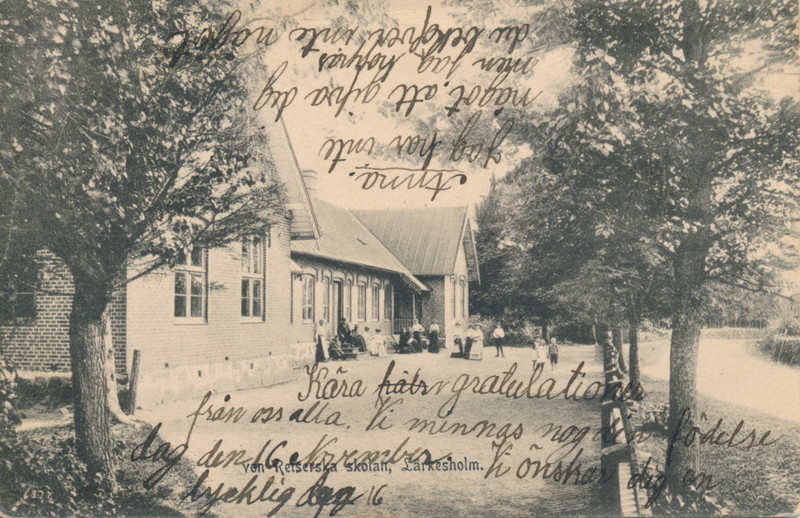 Anna.
Jag har inte
något att gifva dig
men jag hoppas
du behöfver inte något
Kära gratulationer
från oss alla. Vi minnas nog den födelse
dag den 16 November. Vi önskar dig en
von Reiserska skolan, Lärkesholm.
lycklig dag 16